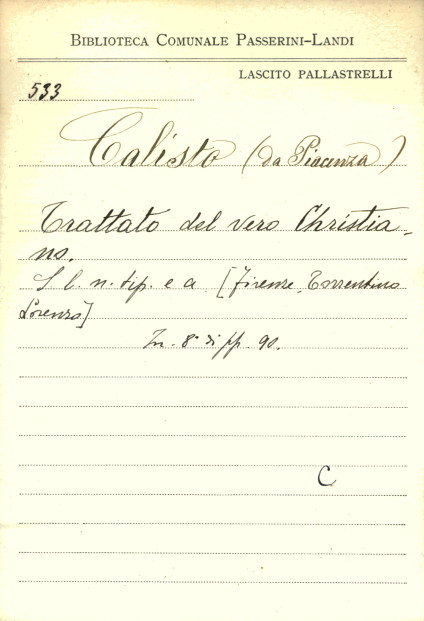 BIBLIOTECA COMUNALE PASSERINI-LANDI
LASCITO PALLASTRELLI
533
Calisto (da Piacenza)
Trattato del vero Christia-
no.
S. l. n. tip. e a [Firenze, Torrentino
Lorenzo]
In. 8° di pp. 90.
C